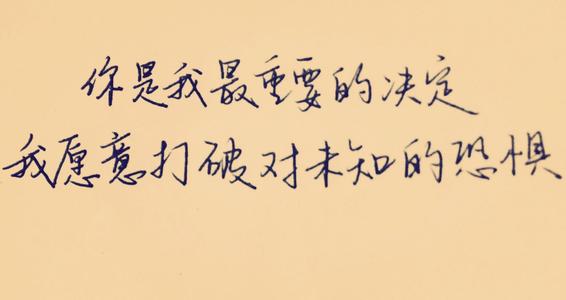 你是我最重要的决定
我愿意打破对未知的恐惧